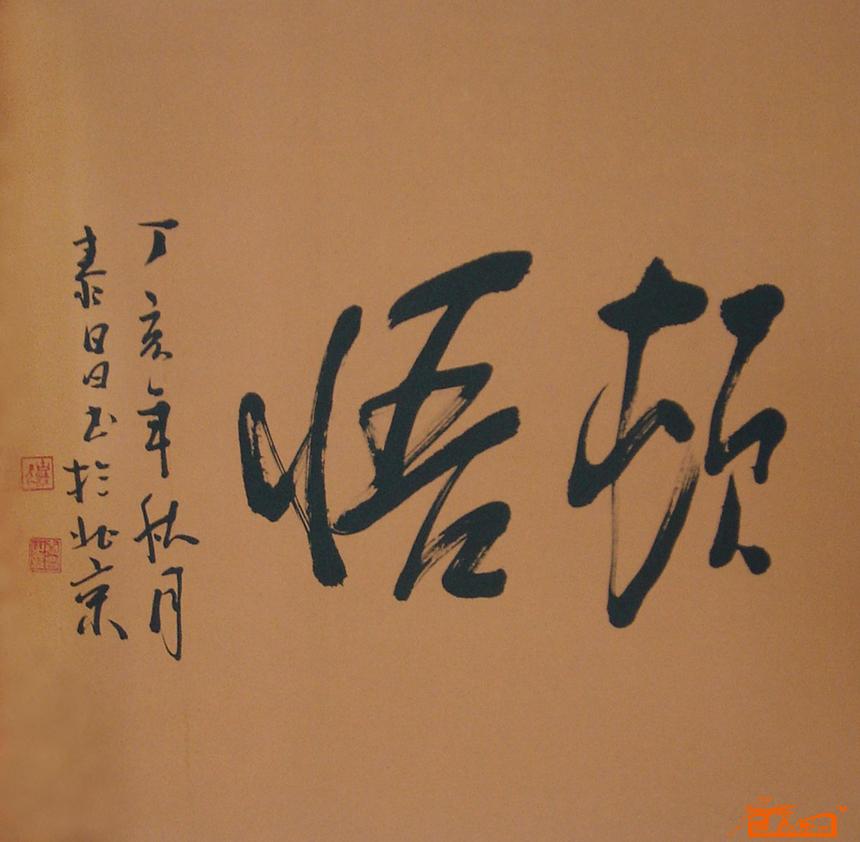 顿悟
丁亥年秋月
泰昌书於北京